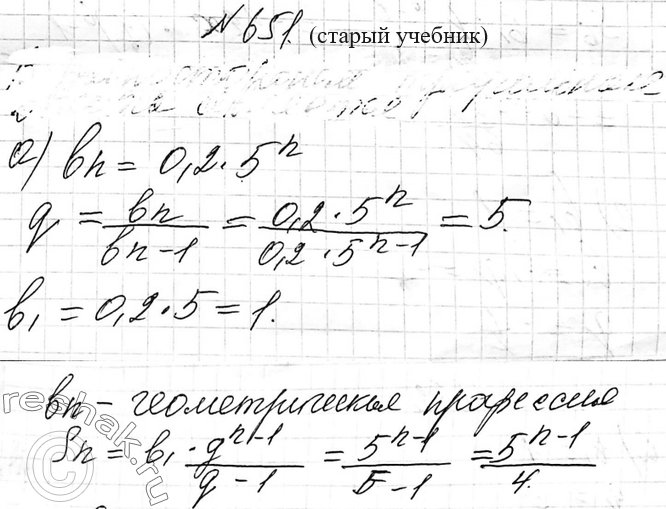 № 651. (старый учебник)
а) bn = 0,2 · 5^n
q = bn / bn-1 = 0,2 · 5^n / 0,2 · 5^n-1 = 5.
b1 = 0,2 · 5 = 1.
bn - геометрическая прогрессия
Sn = b1 · q^n-1 / q - 1 = 5^n-1 / 5 - 1 = 5^n-1 / 4.
reshak.ru